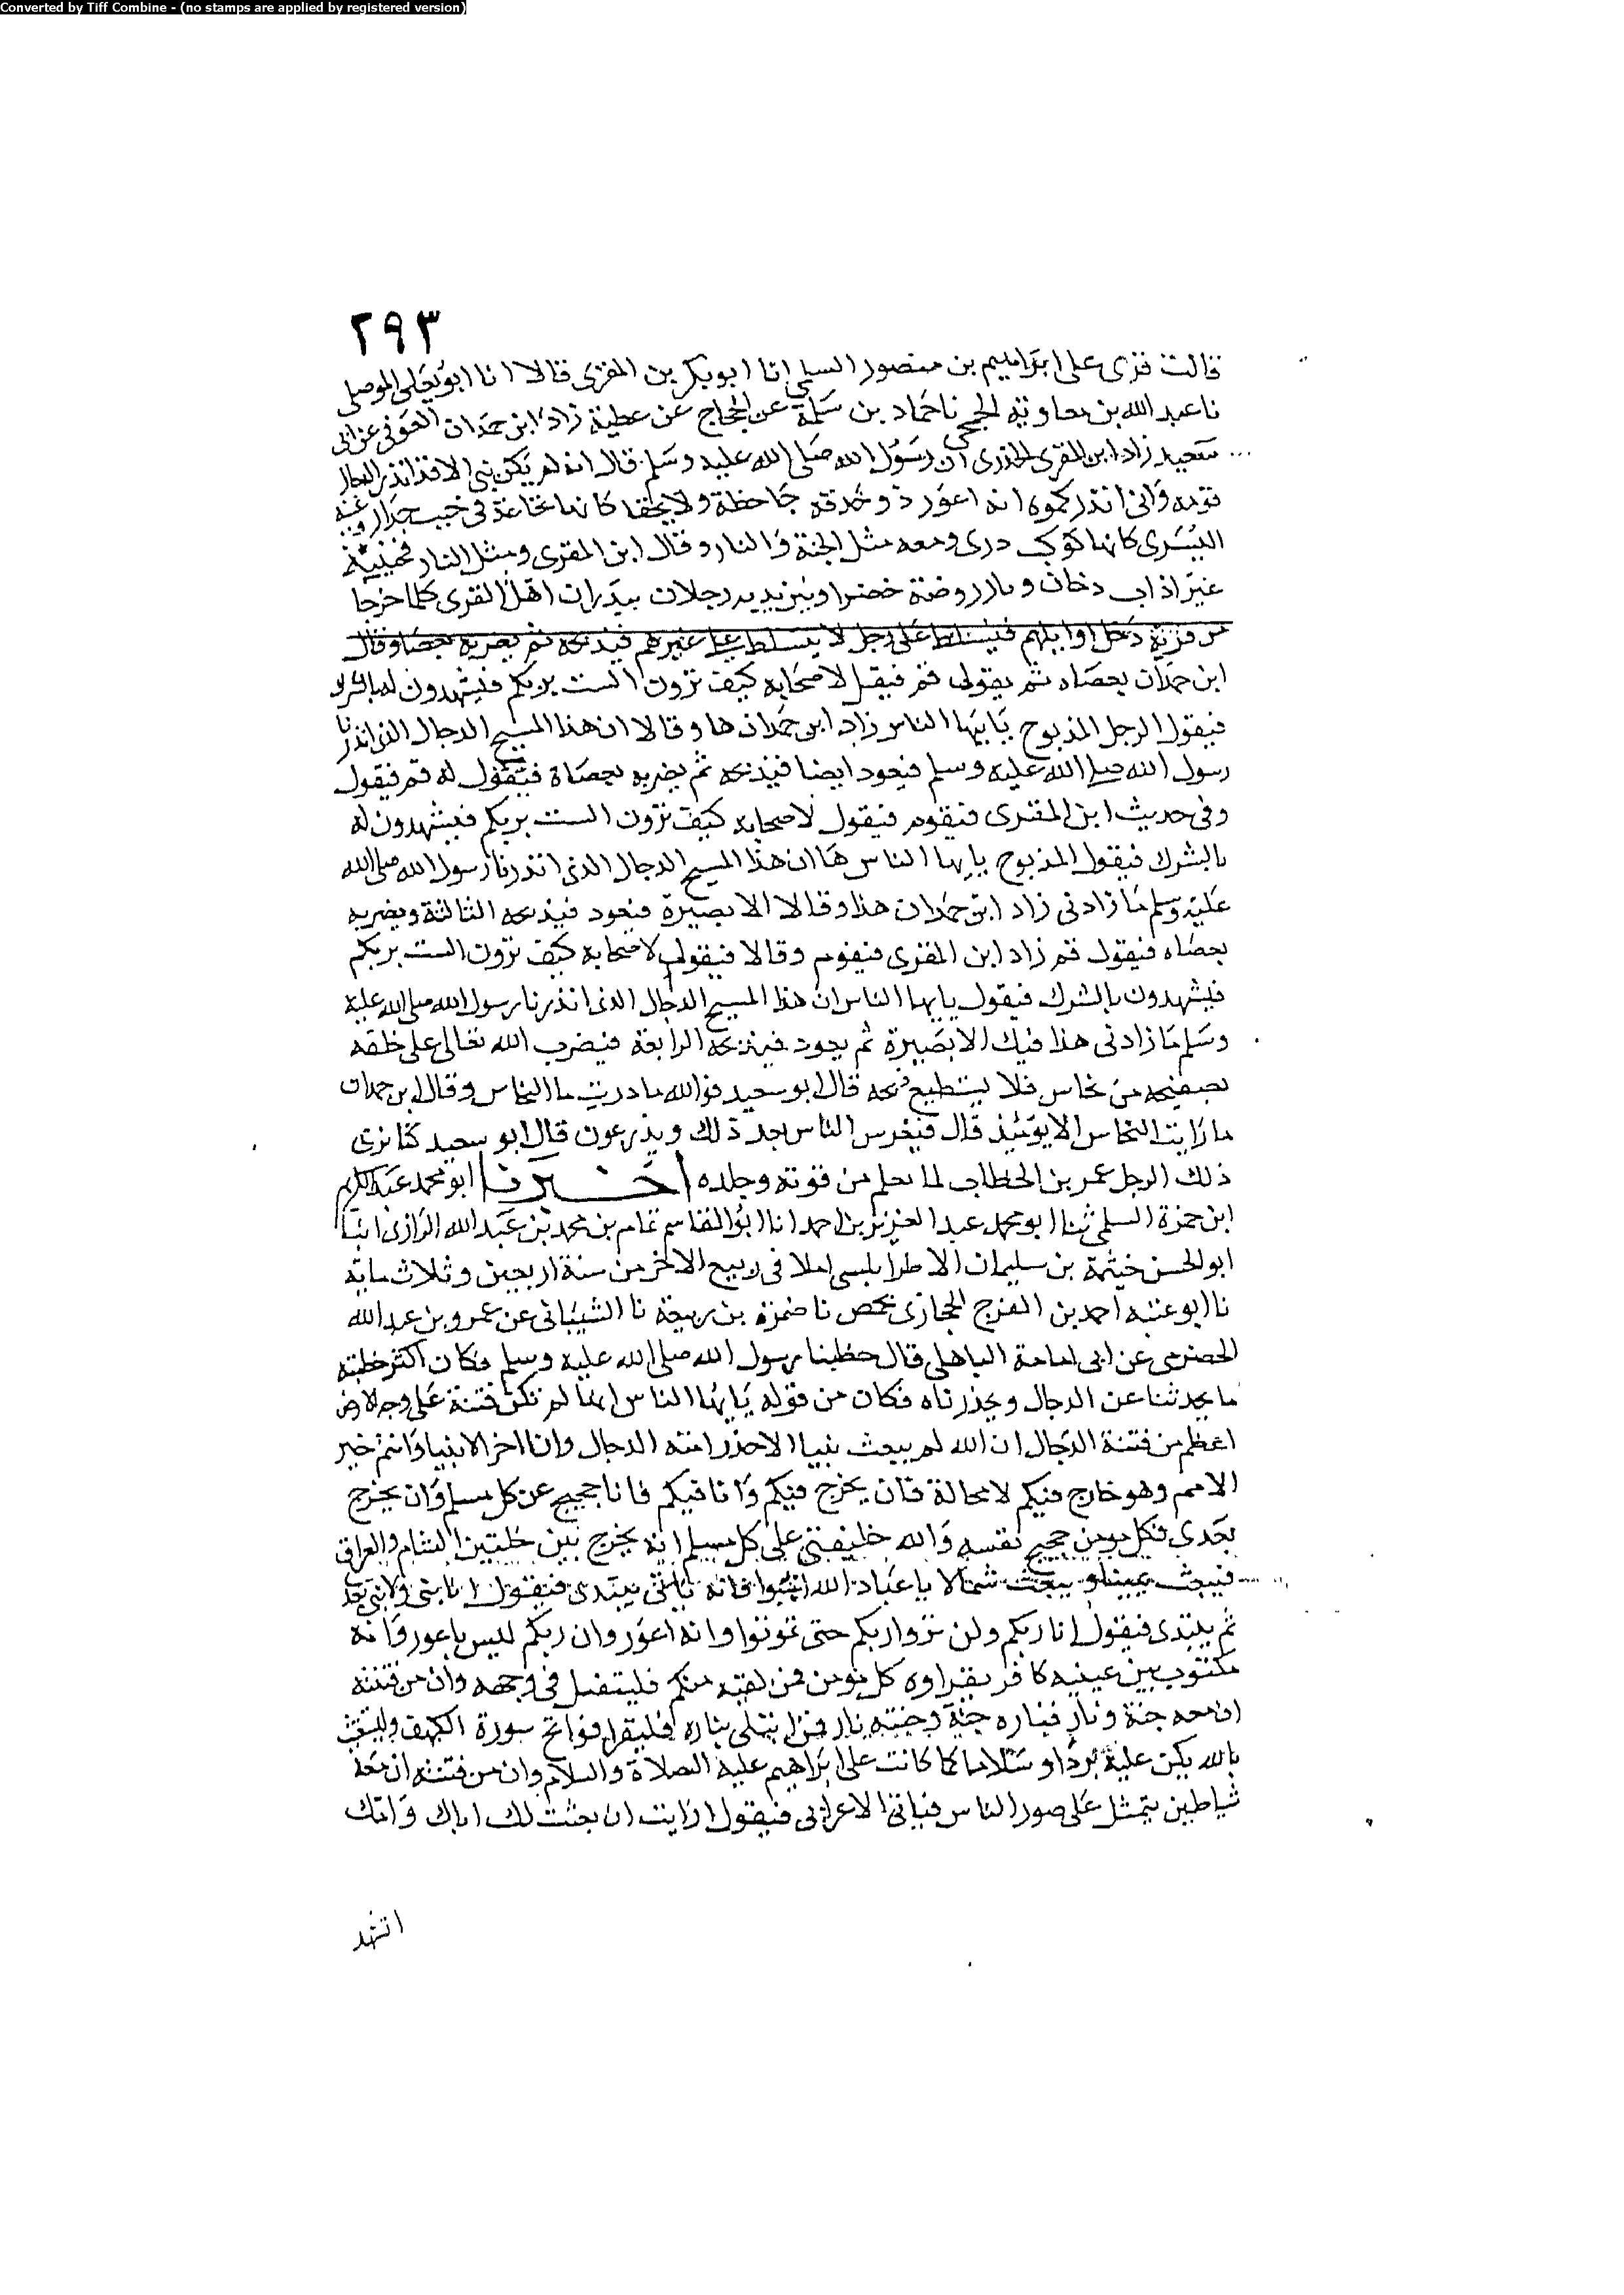 Converted by Tiff Combine - (no stamps are applied by registered version)
٢٩٣
قالت قرى على ابراهيم بن منصور السلمي انا ابو بكر بن المقرى قالا انا ابو يعلى الموصلي
نا عبد الله بن معاوية الجمحي نا حماد بن سلمة عن الحجاج عن عطية زاد ابن حمدان العوفي عن ابي
سعيد زاد ابن المقرى الخدرى ان رسول الله صلى الله عليه وسلم قال انه لم يكن نبي الا قد انذر الدجال
قومه وانى انذركموه انه اعور ذو حدقة جاحظة ولا يخفا كانها نخاعة في جنب جدار وعينه
اليسرى كانها كوكب درى ومعه مثل الجنة والنار وقال ابن المقرى ومثل النار فجنته
غبرا ذات دخان وناره روضة خضرا وبين يديه رجلان ينذران اهل القرى كلما خرجا
من قرية دخل اوايلهم فيسلط على رجل لا يسلط على غيرهم فيذبحه ثم يضربه بعصا وقال
ابن حمدان بعصاه ثم يقول قم فيقول لاصحابه كيف ترون الست بربكم فيشهدون له بالشرك
فيقول الرجل المذبوح يايها الناس زاد ابن حمدان ها وقالا ان هذا المسيح الدجال الذى انذرنا
رسول الله صلى الله عليه وسلم فيعود ايضا فيذبحه ثم يضربه بعصاة فيقول له قم فيقول
وفى حديث ابن المقرى فيقوم فيقول لاصحابه كيف ترون الست بربكم فيشهدون له
بالشرك فيقول المذبوح يايها الناس ها ان هذا المسيح الدجال الذى انذرنا رسول الله صلى الله
عليه وسلم ما زادنى زاد ابن حمدان هذا وقالا الا بصيرة فيعود فيذبحه الثالثة ويضربه
بعصاه فيقول قم زاد ابن المقرى فيقوم وقالا فيقول لاصحابه كيف ترون الست بربكم
فيشهدون بالشرك فيقول يايها الناس ان هذا المسيح الدجال الذى انذرنا رسول الله صلى الله عليه
وسلم ما زادنى هذا فيك الا بصيرة ثم يعود فيذبحه الرابعة فيضرب الله تعالى على حلقه
بصفيحة من نحاس فلا يستطيع ذبحه قال ابو سعيد فوالله ما دريت ما النحاس وقال ابن حمدان
ما رايت النحاس الا يومئذ قال فيغرس الناس بعد ذلك ويزرعون قال ابو سعيد كنا نرى
ذلك الرجل عمر بن الخطاب لما نعلم من قوته وجلده اخبرنا ابو محمد عبد الكريم
ابن حمزة السلمى ثنا ابو محمد عبد العزيز بن احمد انا ابو القاسم تمام بن محمد بن عبد الله الرازى انبا
ابو الحسن خيثمة بن سليمان الاطرابلسى املا فى ربيع الاخر من سنة اربعين وثلاث ماية
نا ابو عتبه احمد بن الفرج الحجازى بحمص نا ضمرة بن ربيعة نا الشيبانى عن عمرو بن عبد الله
الحضرمى عن ابى امامة الباهلى قال خطبنا رسول الله صلى الله عليه وسلم فكان اكثر خطبته
ما يحدثنا عن الدجال ويحذرناه فكان من قوله يايها الناس انها لم تكن فتنة على وجه الارض
اعظم من فتنة الدجال ان الله لم يبعث نبيا الا حذر امته الدجال وانا اخر الانبيا وانتم خير
الامم وهو خارج فيكم لا محالة فان يخرج فيكم وانا فيكم فانا حجيج عن كل مسلم وان يخرج
بعدى فكل مومن حجيج نفسه والله خليفتى على كل مسلم انه يخرج بين خلتين الشام والعراق
فيبعث يمينا ويبعث شمالا يا عباد الله اثبتوا فانه ياتى يبتدى فيقول انا نبى ولا نبى بعد
ثم يبتدى فيقول انا ربكم ولن تروا ربكم حتى تموتوا وانه اعور وان ربكم ليس باعور وانه
مكتوب بين عينيه كافر يقراوه كل مومن فمن لقيه منكم فليتفل فى وجهه وان من فتنته
ان معه جنة ونار فناره جنة وجنته نار فمن ابتلى بناره فليقرا فواتح سورة الكهف وليستغث
بالله يكن عليه بردا وسلاما كما كانت على ابراهيم عليه الصلاة والسلام وان من فتنته ان معه
شياطين يتمثل على صور الناس فياتى الاعرابى فيقول ارايت ان بعثت لك اباك وامك
اتشهد